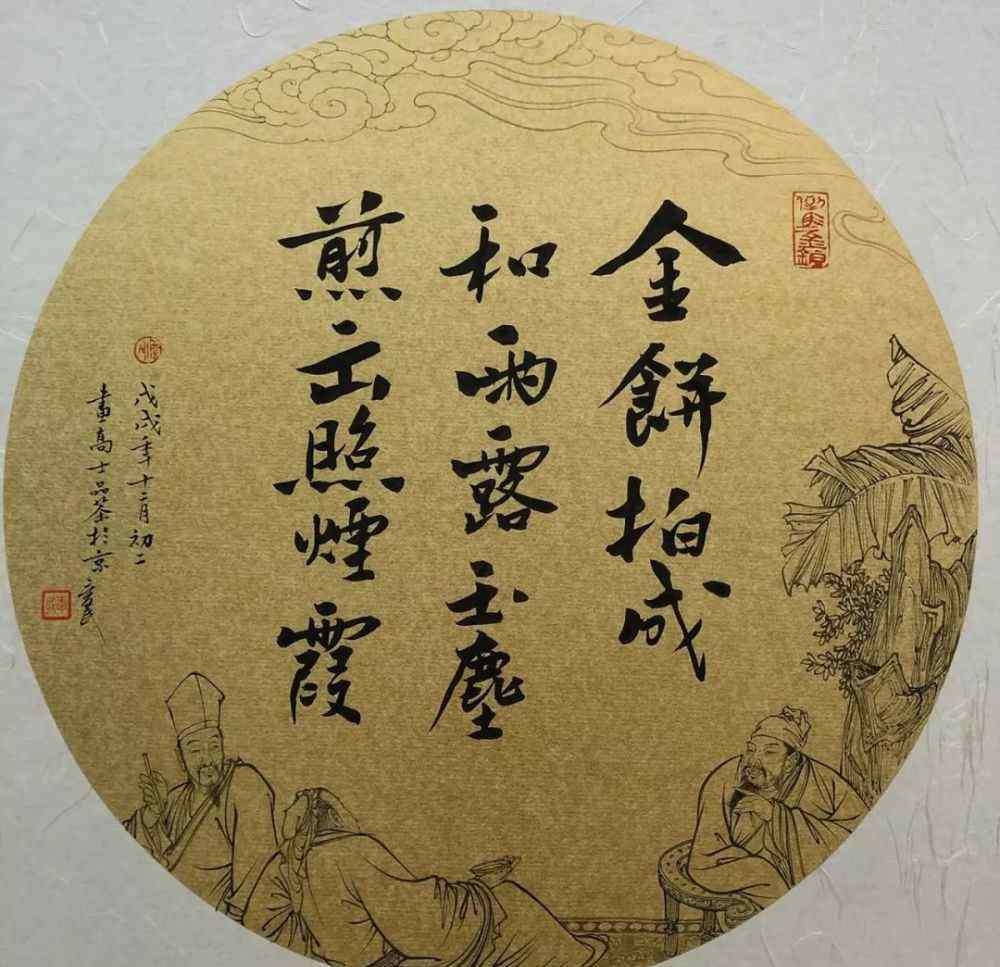 金餅拍成
和雨露玉塵
煎出照煙霞
戊戌年十二月初二
畫高士品茶於京